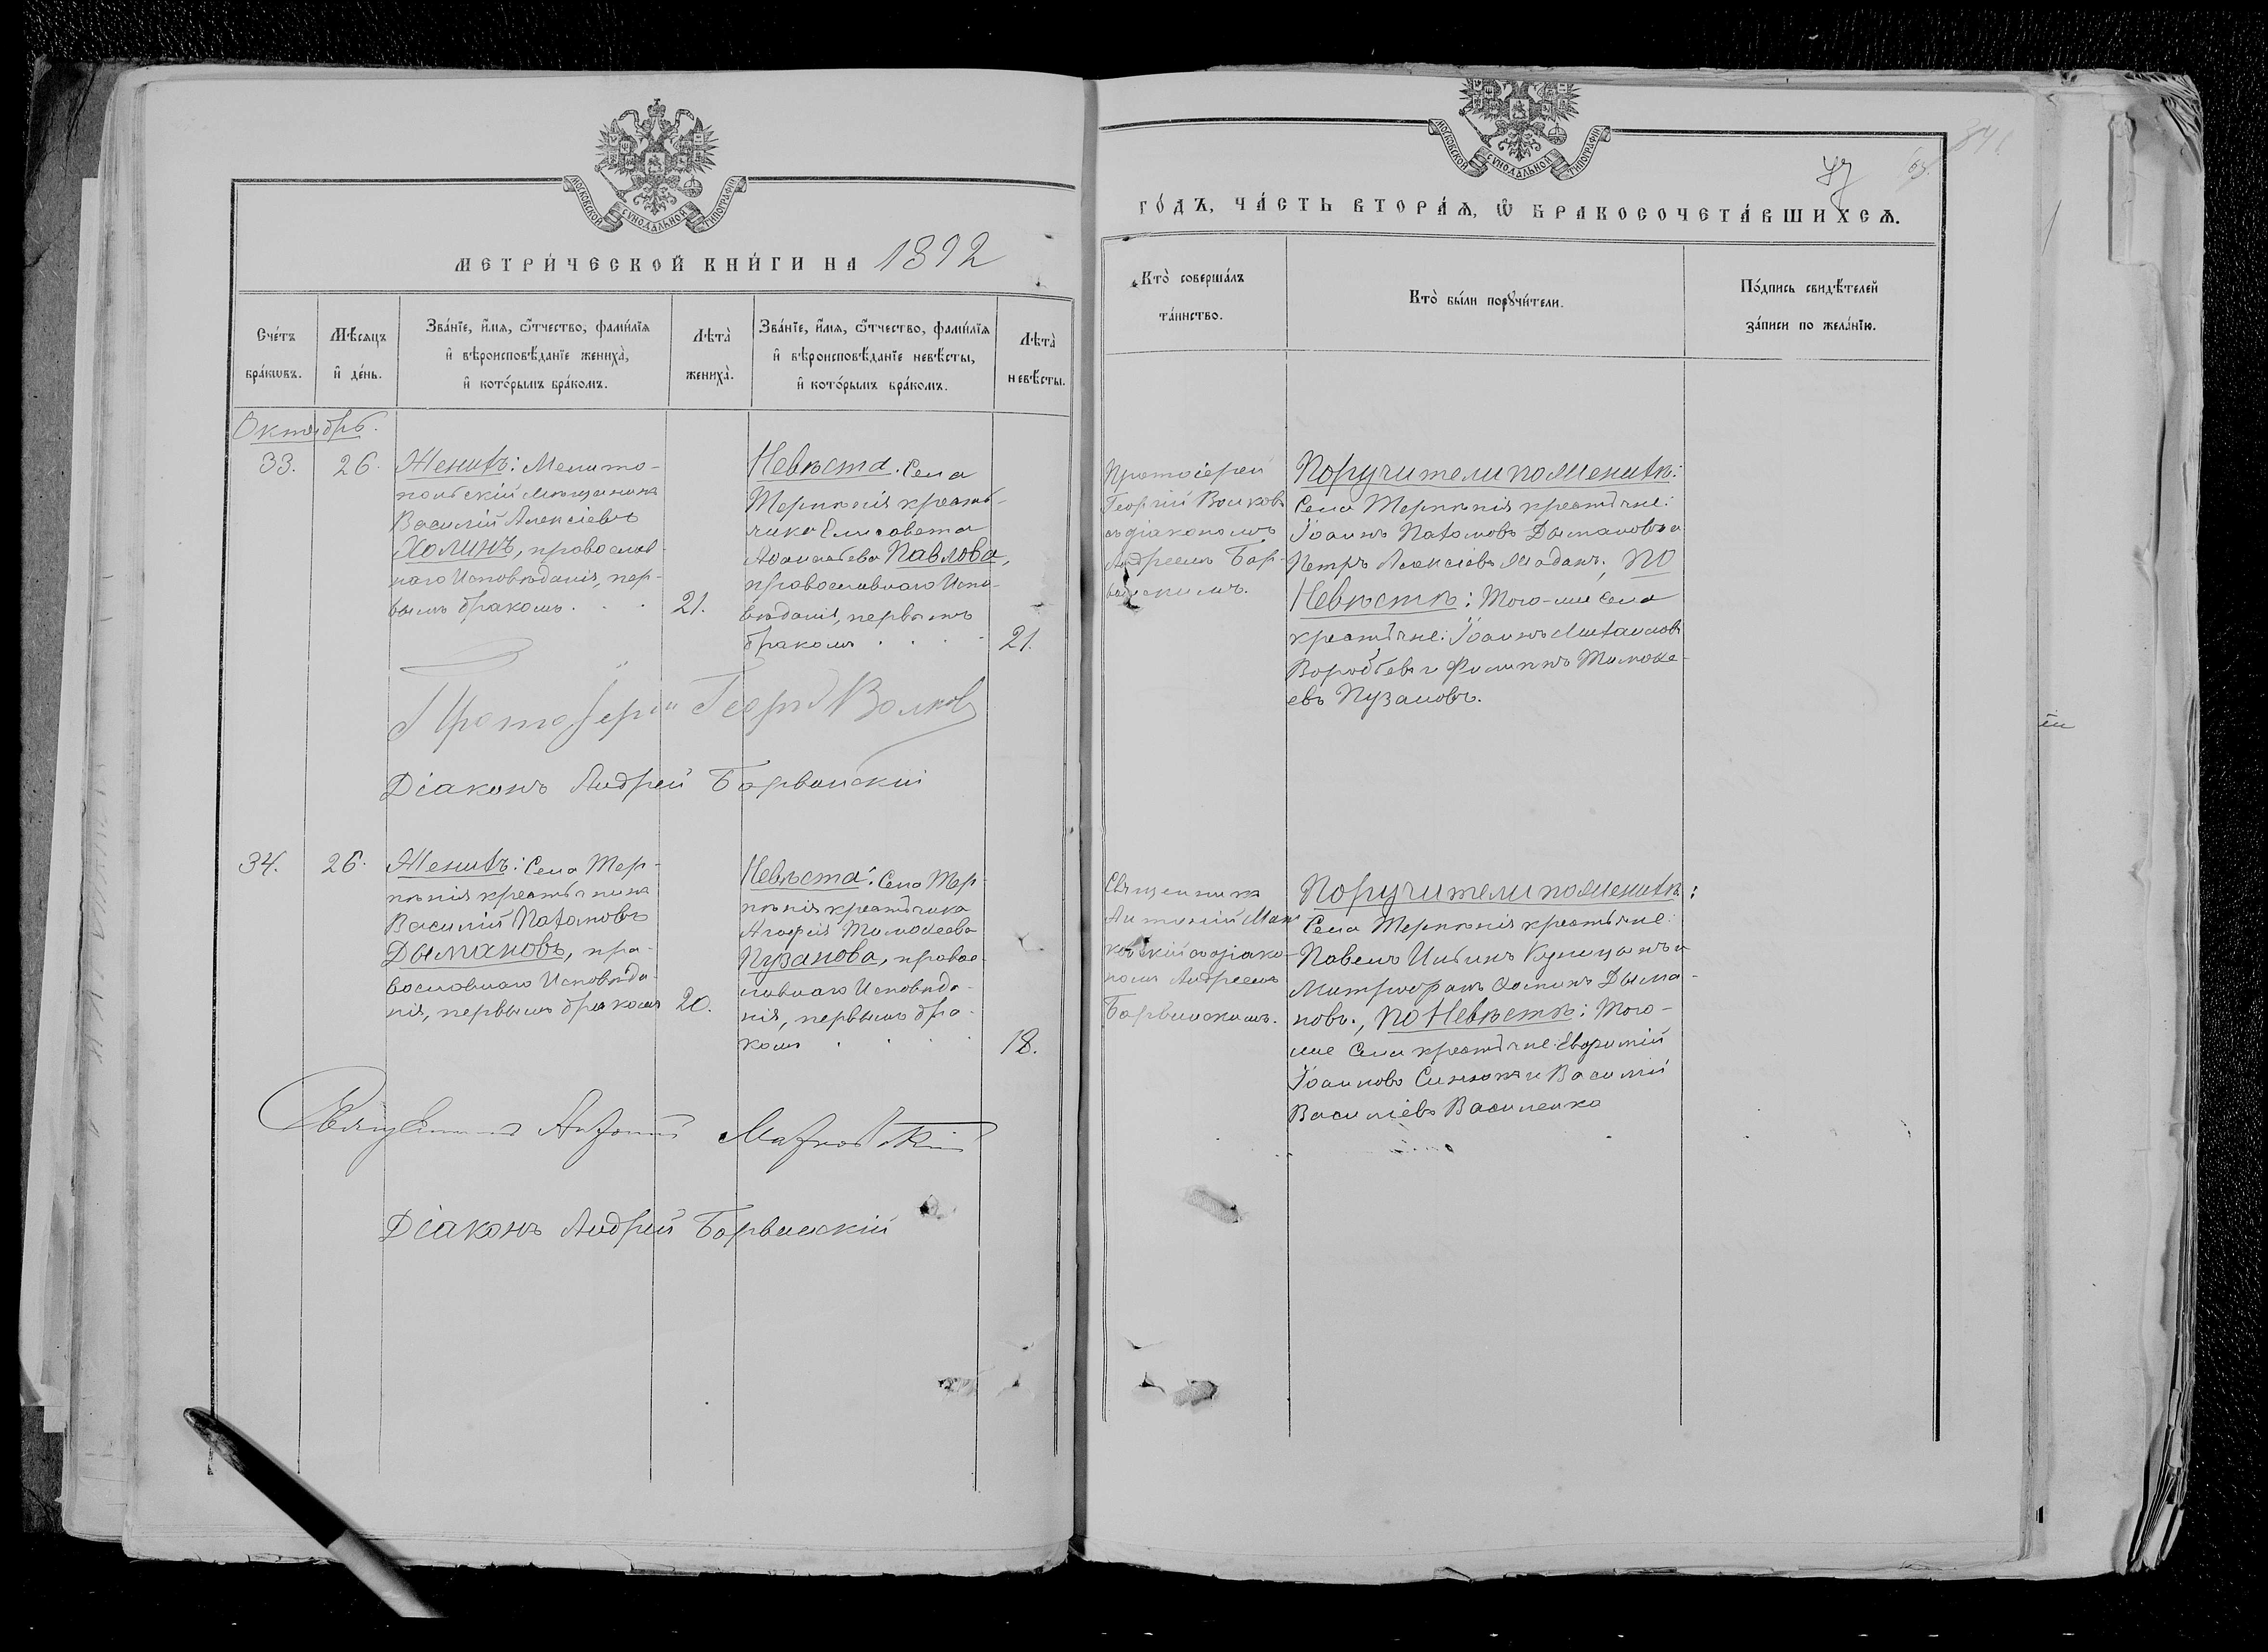 МОСКОВСКОЙ СѴНОДАЛЬНОЙ ТИПОГРАФІИ
МЕТРИ́ЧЕСКОЙ КНИ́ГИ НА 1892
Сче́тъ бра́кѡвъ.
Мѣ́сяцъ и҆ де́нь.
Зва́нїе, и҆́мѧ, ѻ҆́тчество, фами́лїѧ
и҆ вѣроисповѣ́данїе жениха̀,
и҆ кото́рымъ бра́комъ.
Лѣта̀ жениха̀.
Зва́нїе, и҆́мѧ, ѻ҆́тчество, фами́лїѧ
и҆ вѣроисповѣ́данїе невѣ́сты,
и҆ кото́рымъ бра́комъ.
Лѣта̀ невѣ́сты.
Октябрь.
33.
26.
Женихъ: Мелито-
польскій мѣщанинъ
Василій Алексіевъ
Холинъ, православ-
наго Исповѣданія, пер-
вымъ бракомъ.
21.
Невѣста: Села
Терпѣнія крестья-
нка Елисавета
Павлова,
православнаго Испо-
вѣданія, первымъ
бракомъ
21.
Протоіерей Георгій Волковъ
Діаконъ Андрей Барвинскій
34.
26.
Женихъ: Села Тер-
пѣнія крестьянинъ
Василій Патаповъ
Дымановъ, пра-
вославнаго Исповѣда-
нія, первымъ бракомъ
20.
Невѣста: Села Тер-
пѣнія крестьянка
Агафія Тимоѳеева
Пузанова, право-
славнаго Исповѣда-
нія, первымъ бра-
комъ
18.
Священникъ Антоній
Діаконъ Андрей Барвинскій
МОСКОВСКОЙ СѴНОДАЛЬНОЙ ТИПОГРАФІИ
ГО́ДЪ, ЧА́СТЬ ВТОРА́Ѧ, Ѽ БРАКОСОЧЕТА́ВШИХСѦ.
Кто̀ соверша́лъ
та́инство.
Кто̀ бы́ли порꙋчи́тели.
По́дпись свидѣ́телей
за́писи по жела́нїю.
Протоіерей
Георгій Волковъ
съ діакономъ
Андреемъ Бар-
винскимъ.
Поручители по Женихѣ:
Села Терпѣнія крестьяне:
Іоаннъ Патаповъ Дымановъ и
Петръ Алексіевъ Мадаҥъ, по
Невѣстѣ: Того-же Села
крестьяне: Іоаннъ Михаиловъ
Воробьевъ и Филиппъ Тимоѳе-
евъ Пузановъ.
Священникъ
Антоній
съ діако-
номъ Андреемъ
Барвинскимъ.
Поручители по Женихѣ:
Села Терпѣнія крестьяне:
Павелъ Ильинъ Купицынъ и
Митрофанъ Дыма-
новъ, по Невѣстѣ: Того-
же Села крестьяне: Евфимій
Іоанновъ и Василій
Василіевъ Василенко